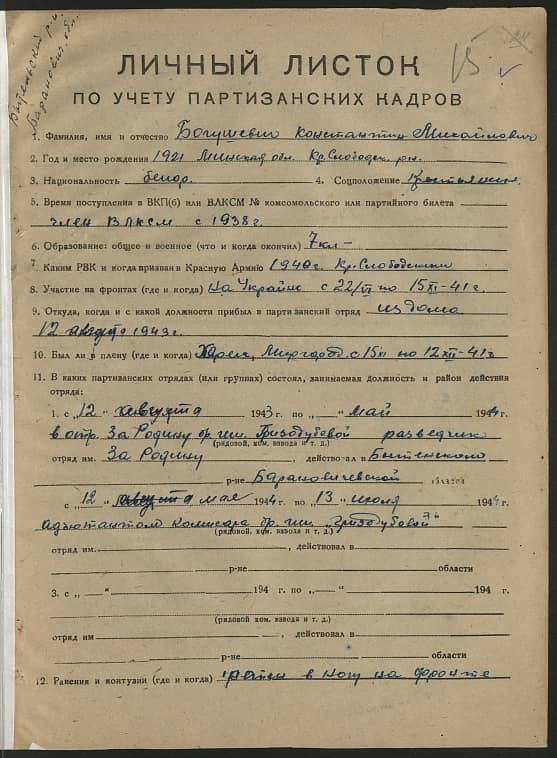 Бытеньский р-н
Баранович. обл.
15
ЛИЧНЫЙ ЛИСТОК
ПО УЧЕТУ ПАРТИЗАНСКИХ КАДРОВ
1. Фамилия, имя и отчество Богушевич Константин Михайлович
2. Год и место рождения 1921 Минская обл. Кр. Слободск. р-н.
3. Национальность белор. 4. Соцположение крестьянин
5. Время поступления в ВКП(б) или ВЛКСМ № комсомольского или партийного билета
член ВЛКСМ с 1938 г.
6. Образование: общее и военное (что и когда окончил) 7 кл –
7 Каким РВК и когда призван в Красную Армию 1940 г. Кр. Слободским
8. Участие на фронтах (где и когда) На Украине с 22/VI по 15 XII-41 г.
9. Откуда, когда и с какой должности прибыл в партизанский отряд из дома
12 августа 1943 г.
10. Был ли в плену (где и когда) с 15 по 12 XII-41 г
11. В каких партизанских отрядах (или группах) состоял, занимаемая должность и район действия
отряда:
1. с „12 “ августа 1943 г. по „ “ май 1944 г.
в отр. За Родину бр. им. Гризодубовой разведчик
(рядовой, ком. взвода и т. д.)
отряд им. За Родину , действовал в Бытенском
р-не Барановичевской области
с „12 “ мае 1944 г. по „13 “ июля 1944 г.
адъютантом комисара бр. им. „Гризодубовой“
(рядовой, ком. взвода и т. д.)
отряд им. , действовал в
р-не области
3. с „ “ 194 г. по „ “ 194 г.
(рядовой ком. взвода и т. д.)
отряд им , действовал в
р-не области
12. Ранения и контузии (где и когда) ранен в ногу на фронте